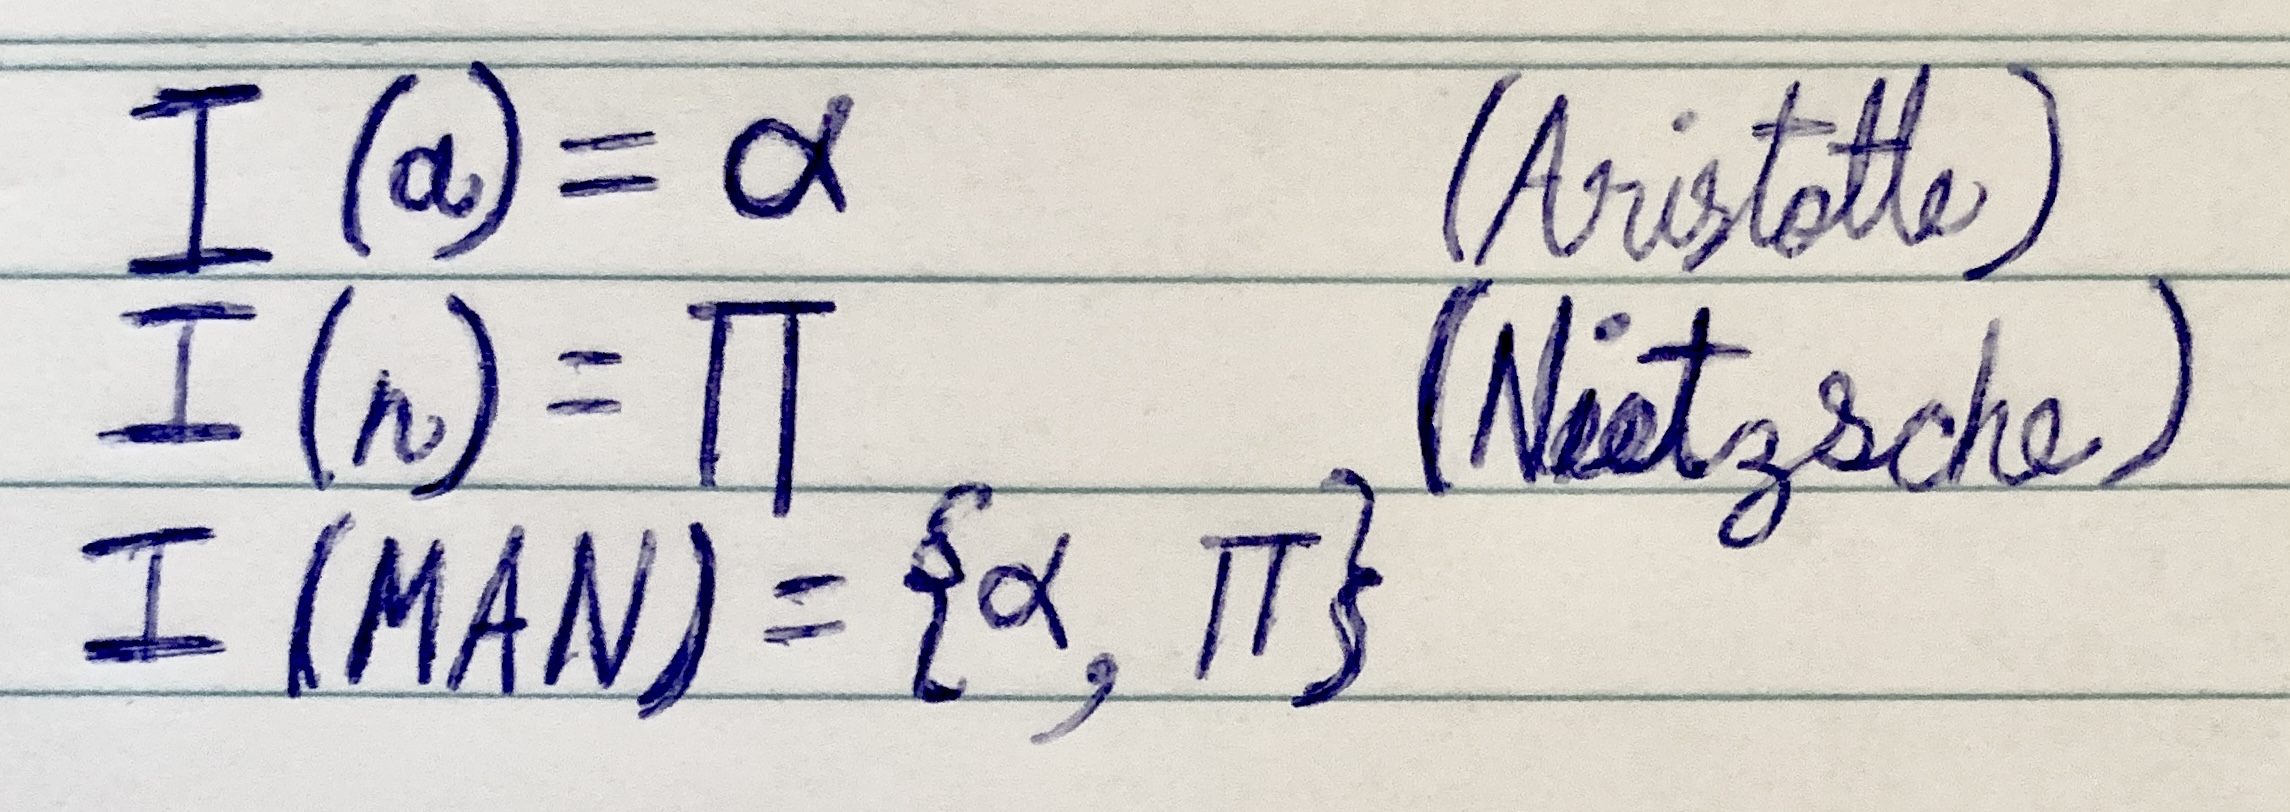 I (a) = α (Aristotle)
I (n) = Π (Nietzsche)
I (MAN) = {α, Π}